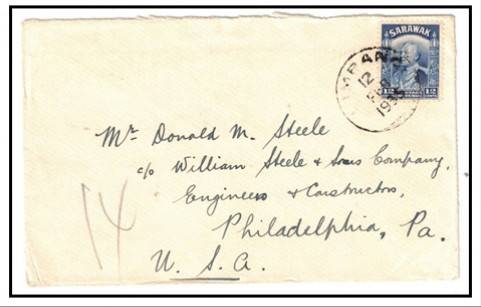 SARAWAK
12
1935
Mr. Donald M. Steele
c/o William Steele & Sons Company,
Engineers & Constructors,
Philadelphia, Pa.
U. S. A.
14